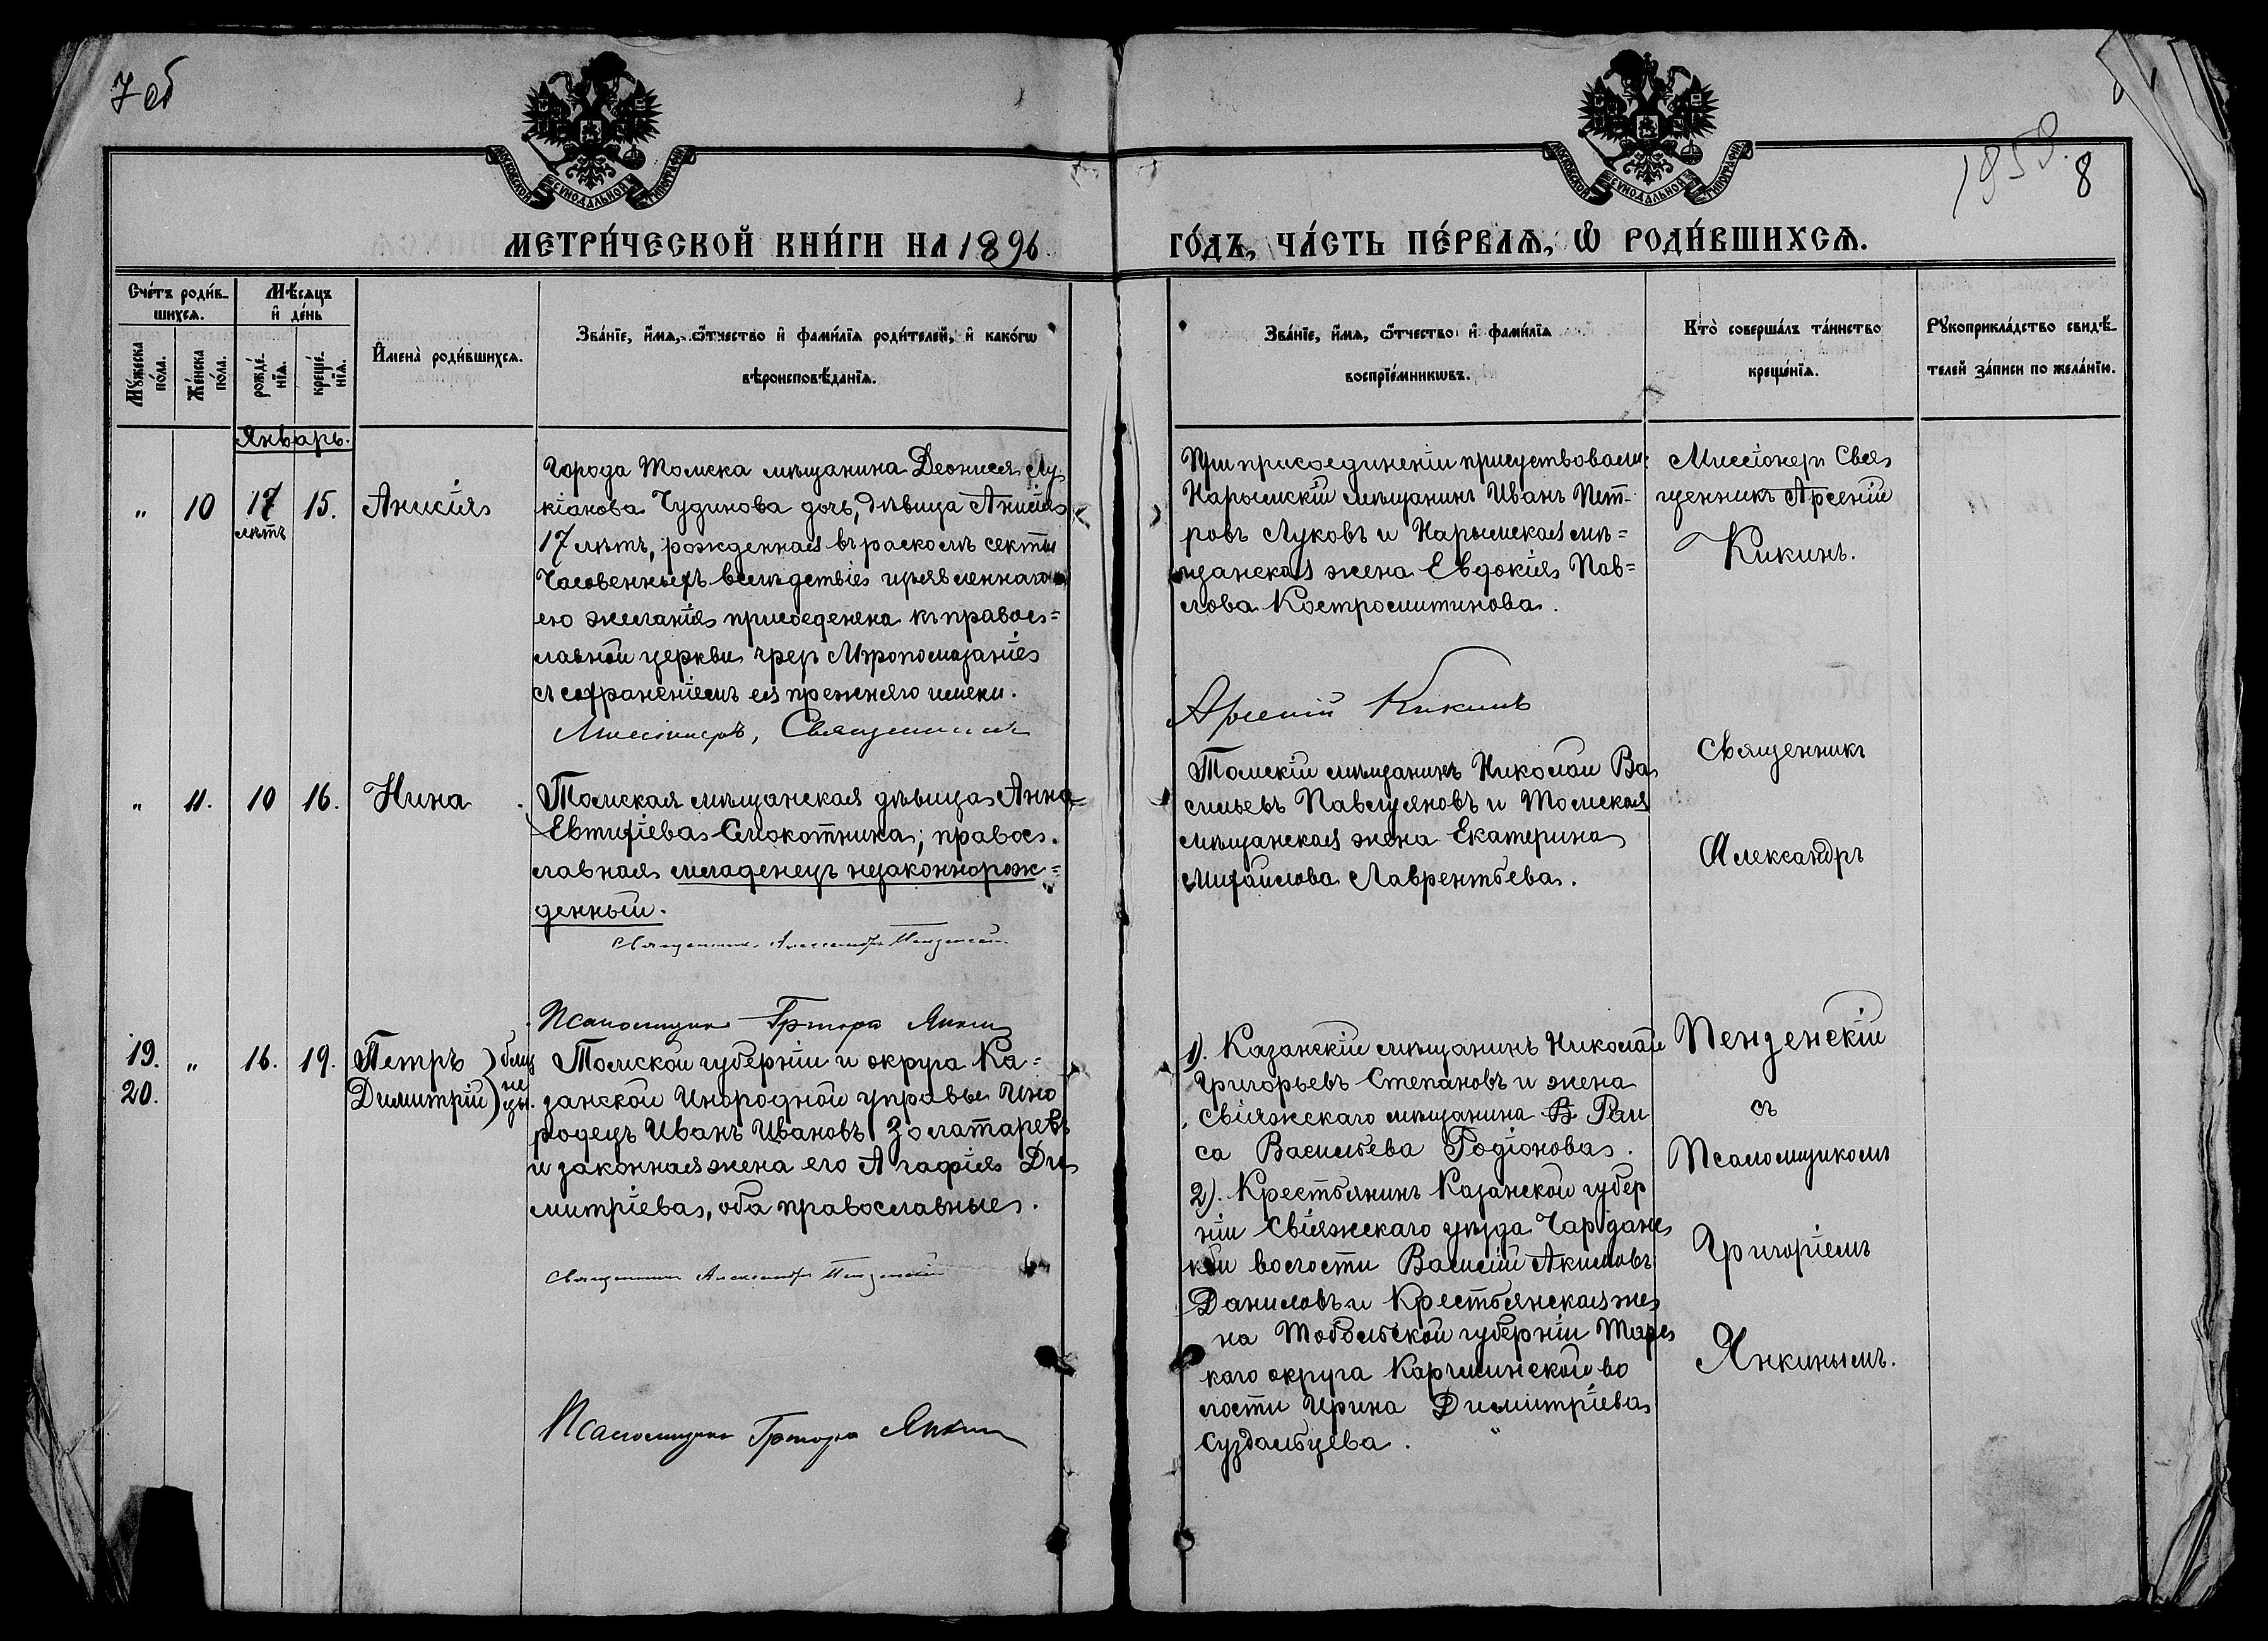 7 об
МОСКОВСКОЙ СѴНОДАЛЬНОЙ ТИПОГРАФІИ
МОСКОВСКОЙ СѴНОДАЛЬНОЙ ТИПОГРАФІИ
8
МЕТРИ́ЧЕСКОЙ КНИ́ГИ НА 1896
ГО́ДЪ, ЧА́СТЬ ПЕ́РВАѦ, Ѡ҆ РОДИ́ВШИХСѦ.
Сче́тъ роди́в-
шихсѧ.
Мѣ́сяцъ
и҆ де́нь
Мꙋ́жеска
по́ла.
Же́нска
по́ла.
рожде́-
нїѧ.
креще́-
нїѧ.
И҆мена̀ роди́вшихсѧ.
Зва́нїе, и҆́мѧ, ѻ҆́тчество и҆ фами́лїѧ роди́телей, и҆ како́гѡ
вѣроисповѣ́данїѧ.
Зва́нїе, и҆́мѧ, ѻ҆́тчество и҆ фами́лїѧ
воспрїе́мникѡвъ.
Кто̀ соверша́лъ та́инство
креще́нїѧ.
Рꙋкоприкла́дство свидѣ́-
телей за́писи по жела́нїю.
Январь.
" 10 17 лѣтъ 15. Анисія
Города Томска мѣщанина Деонисія Лу
кіанова Чудинова дочь, дѣвица Анисія
17 лѣтъ, рожденная въ расколѣ секты
Часовенныхъ вслѣдствіе изъявленнаго
ею желанія присоеденена къ правос=
лавной церкви чрез Мѵропомазаніе
съ сохраненіемъ ея прежняго имени.
Миссіонеръ, Священникъ
При присоединеніи присуствовали:
Нарымскій мѣщанинъ Иванъ Пет-
ровъ Луковъ и Нарымская мѣ=
щанская жена Евдокія Пав=
лова Костромитинова.
Арсеній Кикинъ
Миссіонеръ Свя
щенникъ Арсеній
Кикинъ.
" 11. 10 16. Нина
Томская мѣщанская дѣвица Анна
Евтихіева Слокотника; правос.
лавная младенецъ незаконнорож=
денный.
Священникъ Александръ Пензенскій
Псаломщикъ Григорій Янкин
Томскій мѣщанинъ Николай Ва
сильевъ Павлуяновъ и Томская
мѣщанская жена Екатерина
Михайлова Лаврентьева.
Священникъ
Александръ
Пензенскій
съ
Псаломщикомъ
Григоріемъ
Янкинымъ.
19. " 16. 19. Петръ ) близ
20. Димитрій ) не цы.
Томской губерніи и округа Ка=
занской Инородной управы Ино
родецъ Иванъ Ивановъ Золатаревъ
и законная жена его Агафія Ди
митріева, оба православные.
Священникъ Александръ Пензенскій
Псаломщикъ Григорій Янкин
1). Казанскій мѣщанинъ Николай
Григорьевъ Степановъ и жена
Свіяжскаго мѣщанина Раи
са Васильева Родіонова.
2). Крестьянинъ Казанской губер
ніи Свіяжскаго уѣзда
кой волости Василій Акимовъ
Даниловъ и Крестьянская же
на Тобольской губерніи Тарс
каго округа Карчминской во
лости Ирина Димитріева
Суздальцева.